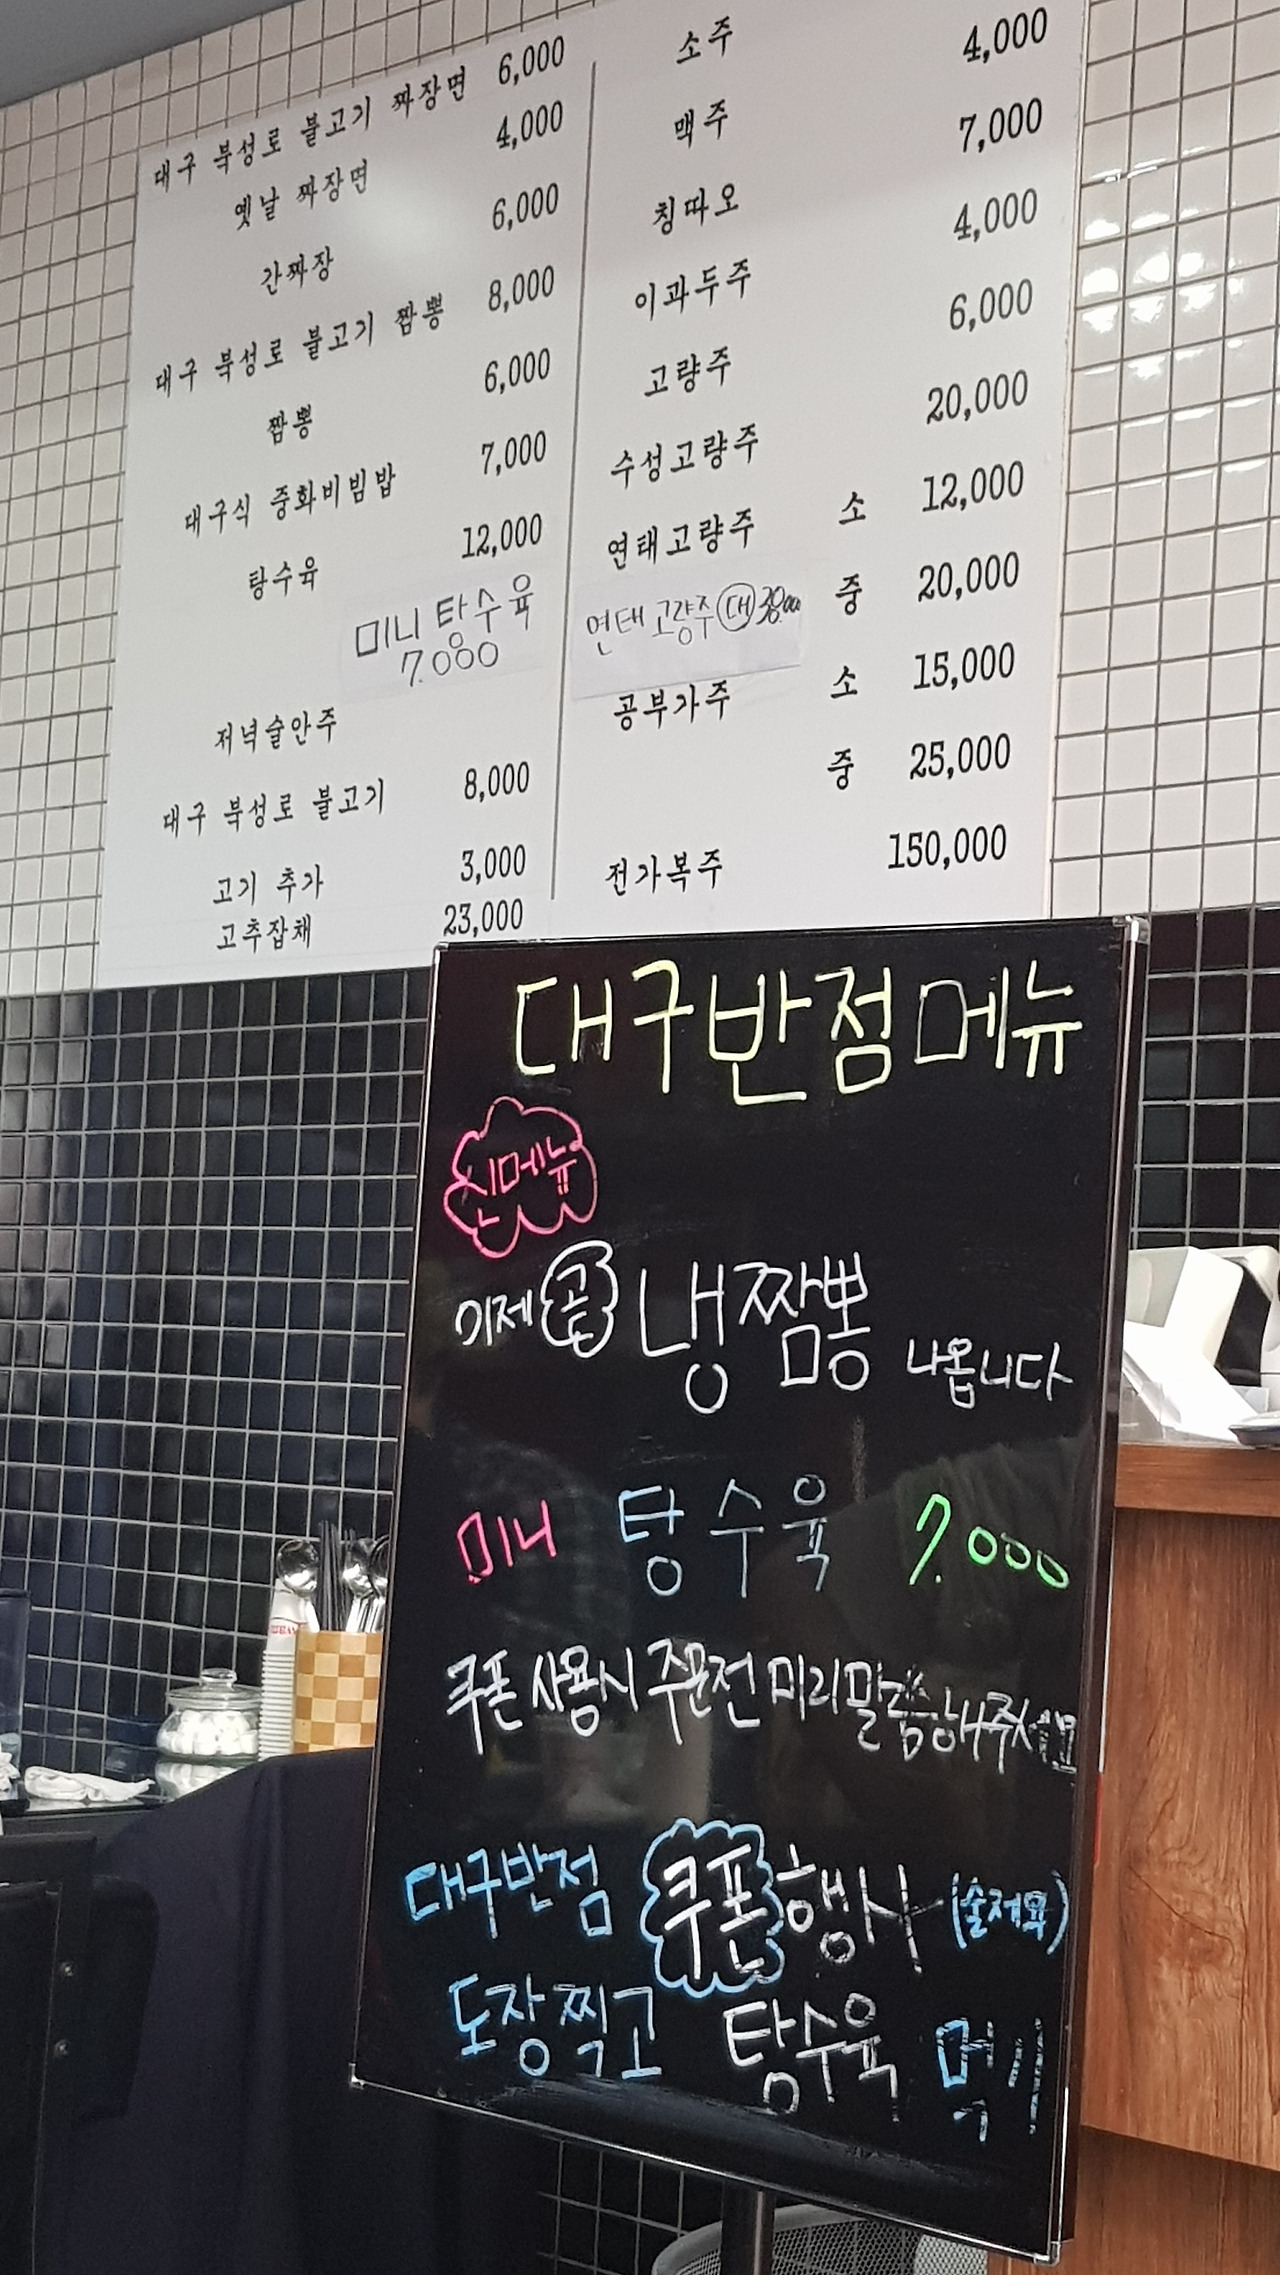 대구 북성로 불고기 짜장면 6,000
옛날 짜장면 4,000
간짜장 6,000
대구 북성로 불고기 짬뽕 8,000
짬뽕 6,000
대구식 중화비빔밥 7,000
탕수육 12,000
미니 탕수육
7.000
저녁술안주
대구 북성로 불고기 8,000
고기 추가 3,000
고추잡채 23,000
소주
맥주 4,000
칭따오 7,000
이과두주 4,000
고량주 6,000
수성고량주 20,000
연태고량주 소 12,000
중 20,000
연태고량주 대
공부가주 소 15,000
중 25,000
전가복주 150,000
대구반점메뉴
신메뉴
이제 곧 냉짬뽕 나옵니다
미니 탕수육 7.000
쿠폰 사용시 주문전 미리 말씀해주세요
대구반점 쿠폰 행사 (술제외)
도장찍고 탕수육 먹기